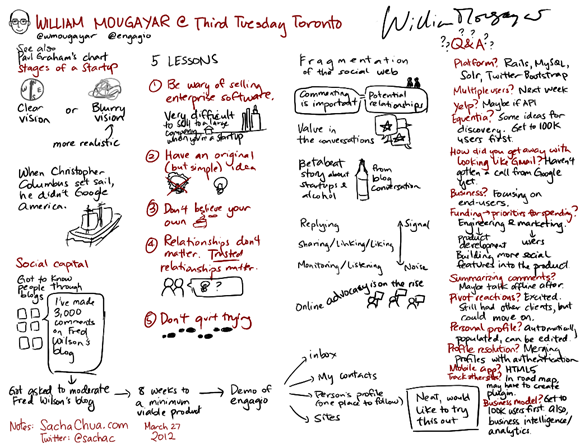 WILLIAM MOUGAYAR @ Third Tuesday Toronto
@wmougayar @engagio
William Mougayar
See also
Paul Graham's chart
Stages of a Startup
Clear
vision
or
Blurry
vision
more realistic
When Christopher
Columbus set sail,
he didn't Google
America.
Social capital
Got to know
people through
blogs
I've made
3,000
comments
on Fred
Wilson's
blog
5 LESSONS
1 Be wary of selling
enterprise software.
Very difficult
to sell to a large
company
when you're a startup
2 Have an original
(but simple) idea
3 Don't believe
your own
4 Relationships don't
matter. Trusted
relationships matter.
?
5 Don't quit trying
Fragmentation
of the social web
Commenting
is important
Potential
relationships
Value in
the conversations
Betabeat
story about
startups &
alcohol
From
blog
conversation
Replying
Sharing/Linking/Liking
Monitoring/Listening
Signal
Noise
Online advocacy is on the rise
Got asked to moderate
Fred Wilson's blog
8 weeks to
a minimum
viable product
Demo of
engagio
inbox
My contacts
Person's profile
(one place to follow)
Sites
Neat, would
like to try
this out
? ? Q&A ? ?
Platform? Rails, MySQL,
Solr, Twitter Bootstrap
Multiple users? Next week
Yelp? Maybe if API
Equentia? Some ideas for
discovery. Get to 100K
users first.
How did you get away with
looking like Gmail? Haven't
gotten a call from Google
yet.
Business? Focusing on
end-users.
Funding → priorities for spending?
Engineering & marketing.
Product
development
users
Building more social
features into the product
Summarizing comments?
Major talk offline after.
Pivot reactions? Excited.
Still had other clients, but
could move on.
Personal profile? Automatically
populated, can be edited.
Profile resolution? Merging
Profiles with authentication
Mobile app? HTML5
Track others' In road map,
may have to create
plugin.
Business model? Get to
100K users first. Also,
business intelligence/
analytics.
Notes: SachaChua.com
Twitter: @sachac
March 27
2012